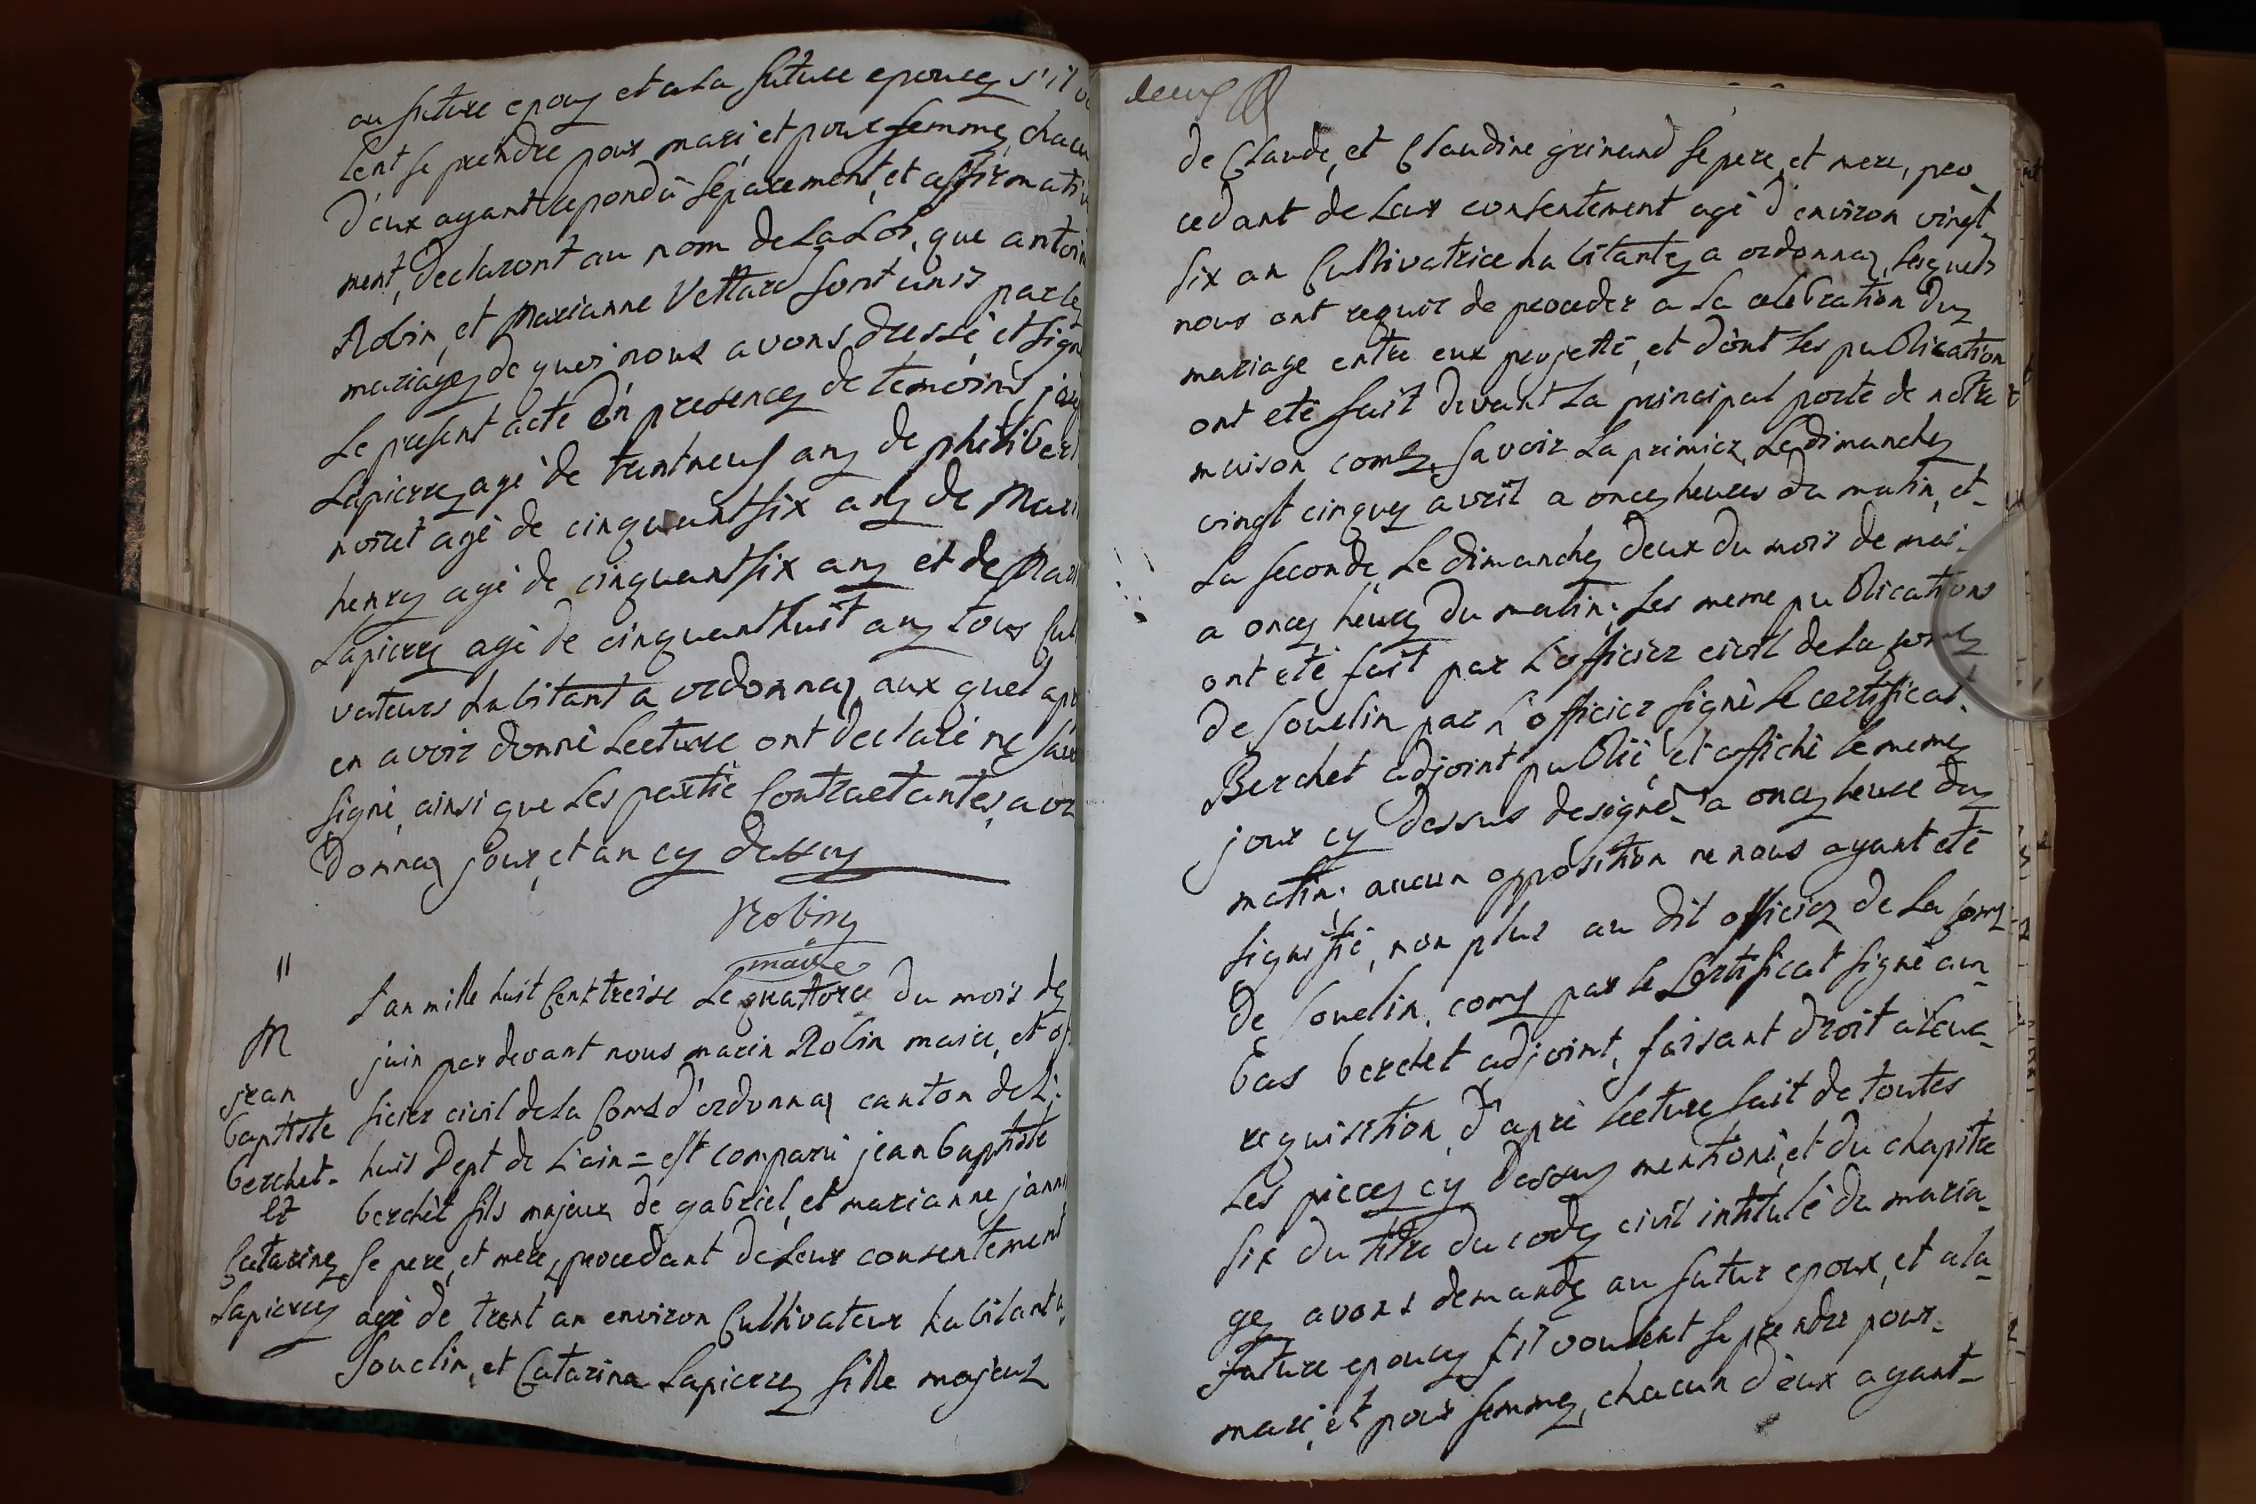 au future epouy et a la future epoucy s'il v
lent se prendre pour mari et pour femmez, chacu
d'eux ayant repondû separement, et affirmativ
ment, declaront au nom de la Loi, que antoin
Robin, et Marianne Vettard sont unis par le
mariagez de quoi nous avons dressé et signé
Le present acte En presencez de temoins, 
Lapierrez agé de trentneuf anz de philibert
noiret agé de cinquantsix anz de Mari
henryz agé de cinquantsix anz et de Mari
Lapierrez agé de cinquanthuit anz tous Cul
vateurs habitant a ordonnaz aux quel apr
en avoir donné Lecture ont declaré ne sav
signé, ainsi que les partie Contractantes, a or
donnaz jour, et an cy dessuy
Robinz
maire
"
M
jean
baptiste
berchet-
et
Catarinez
Lapierrez
L'an mille huit Cent treise Le quattorce du mois de
juin par devant nous marin Robin maire, et of
ficier civil de la Come d'ordonnaz canton de L:
huis Dept de L'ain = est comparu jean baptiste
berchèt fils majeur de gabriel, et marianne jann
se pere, et mere, procedant de Leur consentement
agé de trent an environ Cultivateur habitant a
Souclin, et Catarina Lapierrez fille majeur
deux
de Claude, et Claudine grinand se pere, et mere, pro
cedant de Leur consentement agé d'environ vingt
six an Cultivatrice habitantez a ordonnaz, Lesquels
nous ont requis de proceder a la celebration duz
mariage entre eux projetté, et dont les publication
ont eté fait devant La principal porte de notre
maison comz, savoir La primier, Le dimanchez
vingt cinquez avril a oncez heures du matin, et-
La seconde, Le dimanchez deux du mois de mai-
a oncez heurez du matin; Les meme publications
ont eté fait par L'officier civil de la comz
de souclin par L'officier signé Le certificat.
Berchet adjoint publié, et affiché le memez
jour cy dessus designé a oncez heure duz
matin; aucun opposition ne nous ayant eté
signifié, non plus au dit officier de La comz
De souclin, comz par le Certificat signé au-
bas berchet adjoint, faisant droit a leur-
requisition, d'apré lecture fait de toutes
Les piecez cy dessuy mentioné, et du chapitre
six du titre du codez civil intitulé du maria-
gez avons demandé au futur epoux, et a la-
future epoucez s'il voulent se prendre pour-
mari, et pour femmez, chacun d'eux ayant-